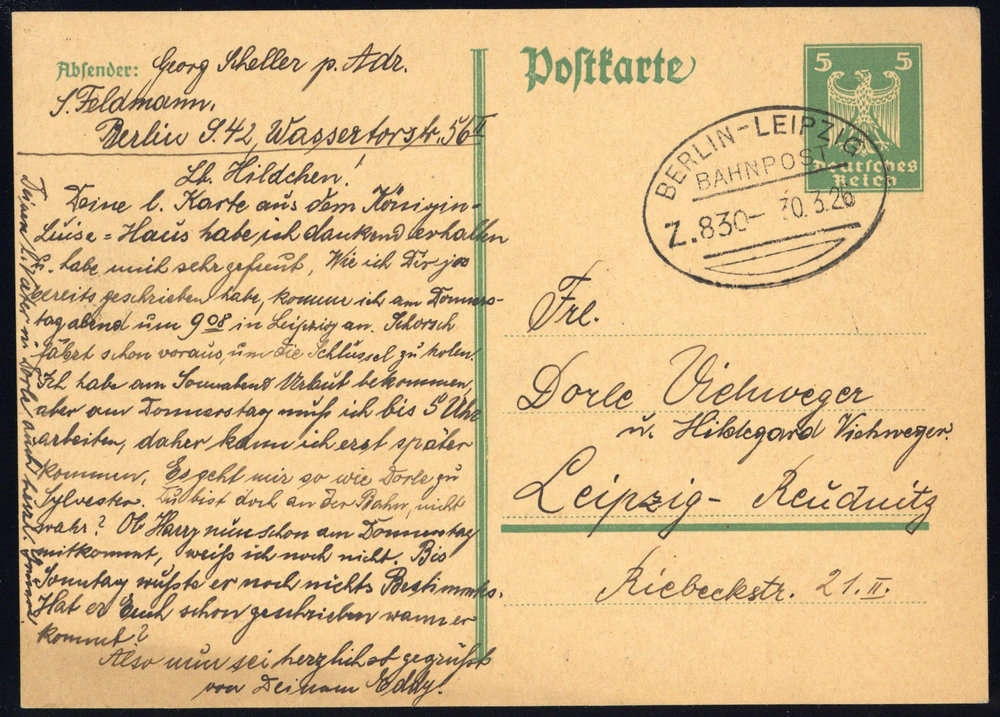 Absender: Georg Scheller p. Adr.
S. Feldmann.
Berlin S.42, Wassertorstr. 56 II
Lb. Hildchen!
Deine l. Karte aus dem Königin-
Luise=Haus habe ich dankend erhalten
u. habe mich sehr gefreut, Wie ich Dir ja
bereits geschrieben habe, komme ich am Donners-
tag abend um 9 08 in Leipzig an. Schorsch
fährt schon voraus, um die Schlüssel zu holen.
Ich habe am Sonnabend Urlaub bekommen,
aber am Donnerstag muß ich bis 5 Uhr
arbeiten, daher kann ich erst später
kommen. Es geht mir so wie Dorle zu
Sylvester. Du bist doch an der Bahn, nicht
wahr? Ob Harry nun schon am Donnerstag
mitkommt, weiß ich noch nicht. Bis
Sonntag wußte er noch nichts Bestimmtes.
Hat er Euch schon geschrieben wann er
kommt?
Also nun sei herzlichst gegrüßt
von Deinem Eddy.
Vater u. Dorle
Postkarte
5 5
Deutsches
Reich
BERLIN-LEIPZIG
BAHNPOST
Z.830- 30.3.26
Frl.
Dorle Viehweger
u. Hildegard Viehweger.
Leipzig-Reudnitz
Riebeckstr. 21. II.